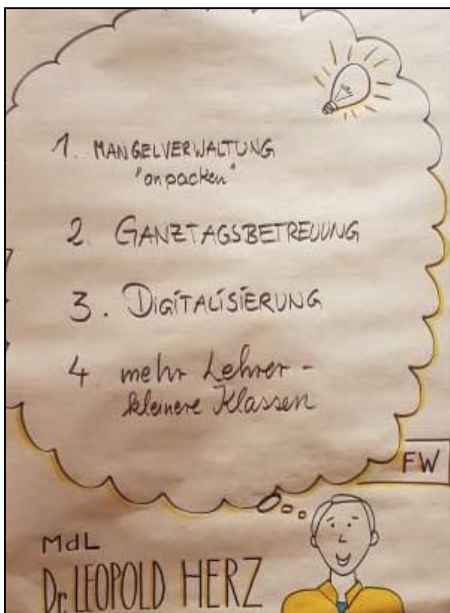 1. MANGELVERWALTUNG
"anpacken"
2. GANZTAGSBETREUUNG
3. DIGITALISIERUNG
4 mehr Lehrer -
kleinere Klassen
FW
MdL
Dr. LEOPOLD HERZ